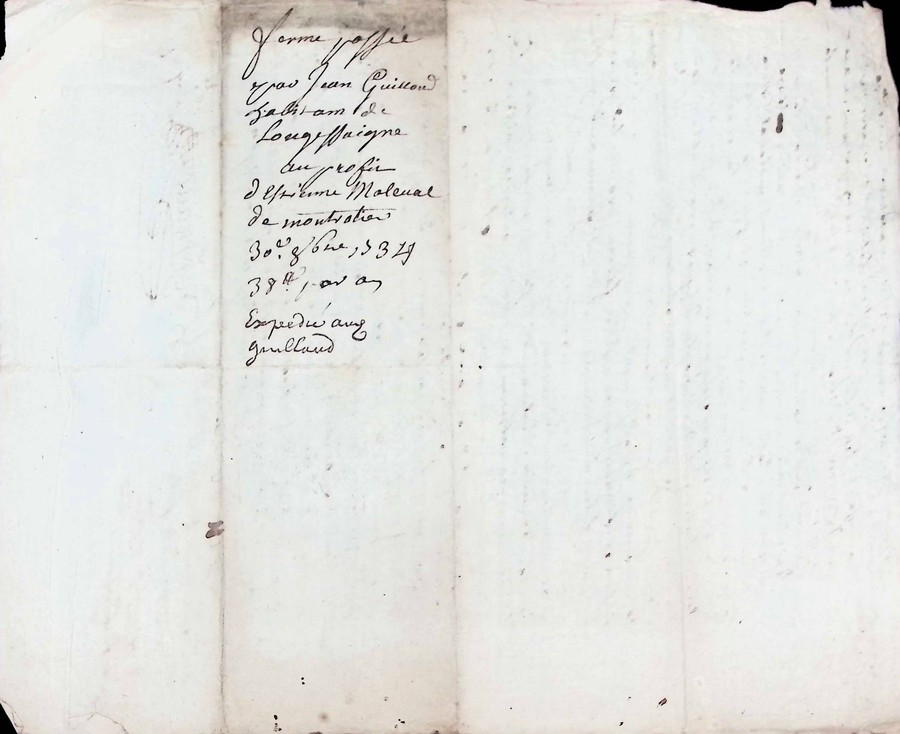 ferme passée
par Jean Guilloud
habitant de
Longessaigne
au profit
d'Estienne Moleval
de montrotier
30e 8bre
38tt par an
Expedié aux
guilloud